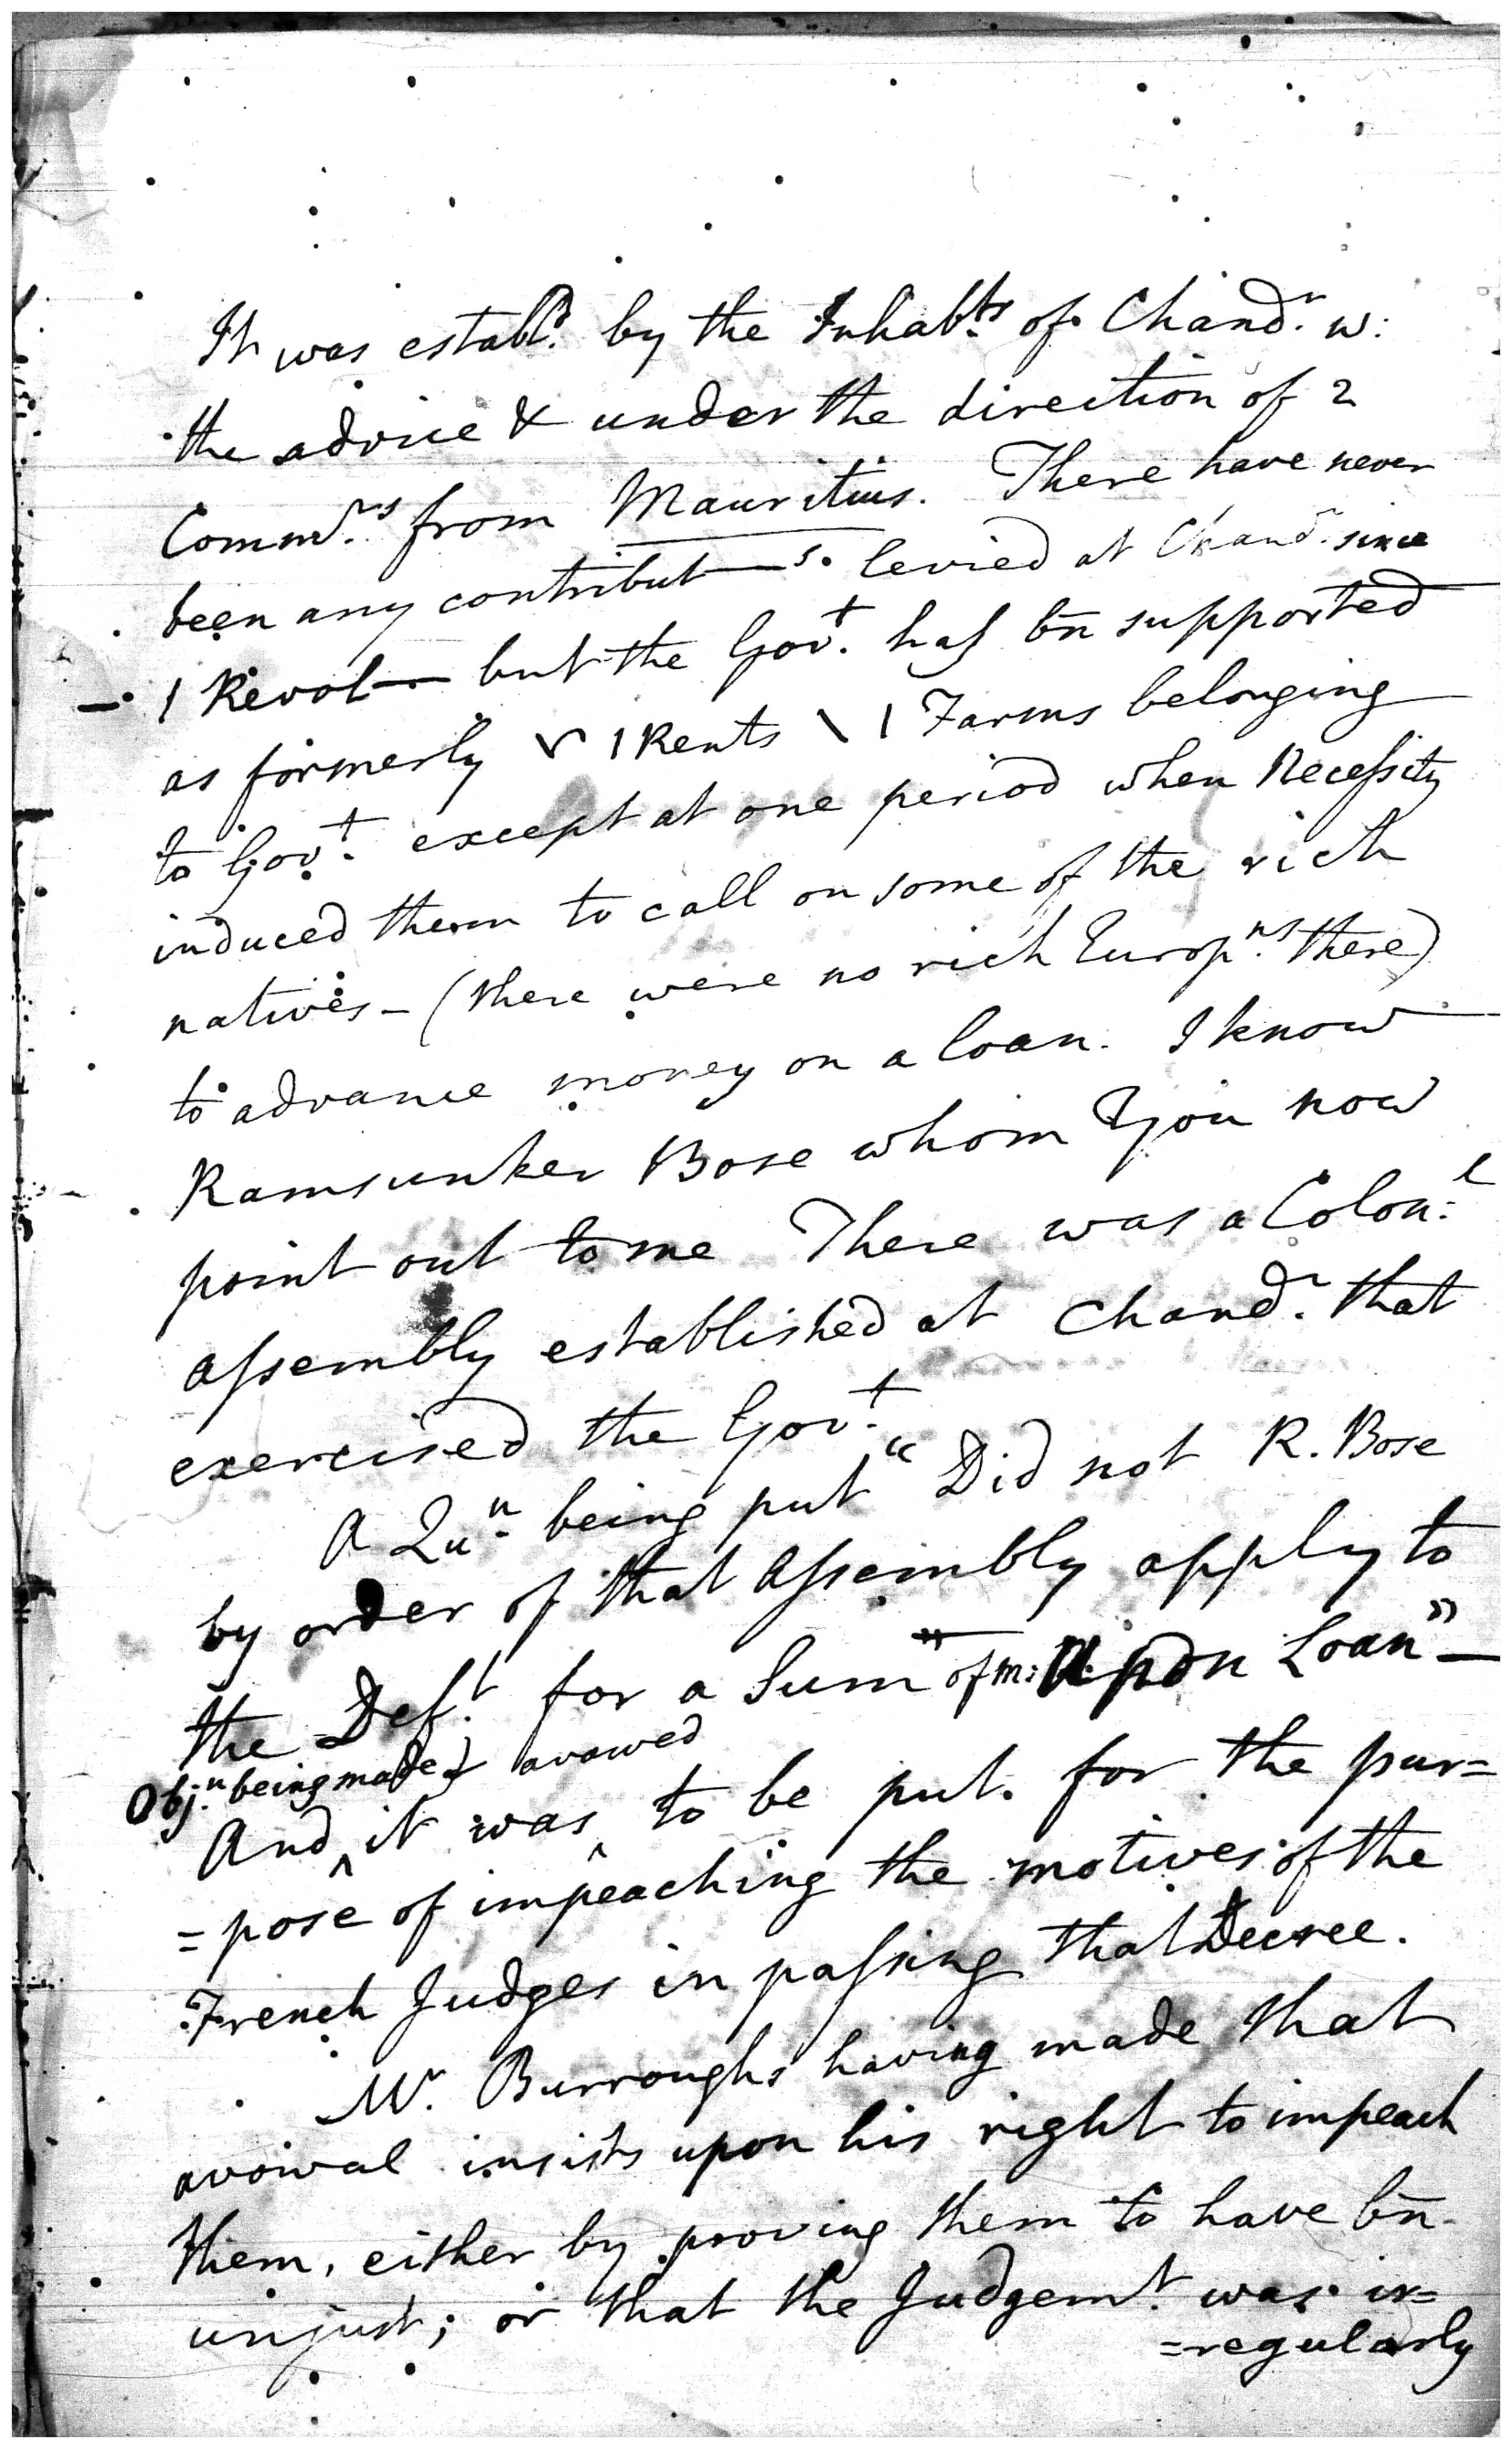 It was establd. by the Inhabts. of Chandr. w:
the advice & under the direction of 2
Commrs. from Mauritius. There have never
been any contribut—s. levied at Chandr. since
1 Revol— but the Govt. has bn supported
as formerly v 1 Rents \ 1 Farms belonging
to Govt. except at one period when Necessity
induced them to call on some of the rich
natives – (there were no rich Europns. there)
to advance money on a loan. I know
Ramsunker Bose whom You now
point out to me There was a Colonl.
assembly established at Chandr. that
exercised the Govt.
A Qun. being put "Did not R. Bose
by order of that Assembly apply to
the Deft. for a Sum of m: upon Loan" —
Objn. being made avowed
And ^ it was ^ to be put. for the pur=
=pose of impeaching the motives of the
French Judges in passing that Decree.
Mr. Burroughs having made that
avowal insists upon his right to impeach
them, either by proving them to have bn
unjust; or that the Judgemt. was ir=
=regularly